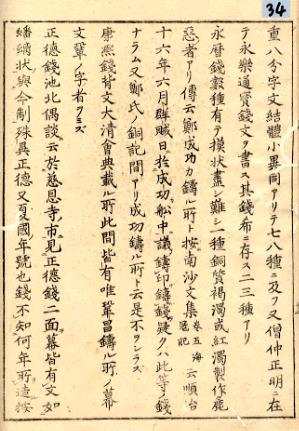 34
重八分字文結體小異同アリテ七八種ニ及フ又僧仲正明ニ在
テ永樂通寳錢文ヲ書ス其錢希ニ存ス二三種アリ
永曆錢數種有テ摸狀盡シ難シ一種銅質褐濁或紅濁製作麁
惡者アリ傳云鄭成功カ鑄ル所ト按南沙文集卷五海寇記云順治
十六年六月髀賊日於成功舩中議鑄印鑄錢疑クハ此等ノ錢
ナラム又鄭氏ノ銅記間アリ成功鑄ル所ト云是不ラシ
康熙錢背文大清會典載ル所此間皆有唯鞏昌鑄ル所ノ幕
文鞏ノ字者ヲミス
正德錢池北偶談云於慈恩寺市見正德錢二面幕皆有文如
蟠螭狀與今制殊異正德又夏國年號也錢不知何年所造按